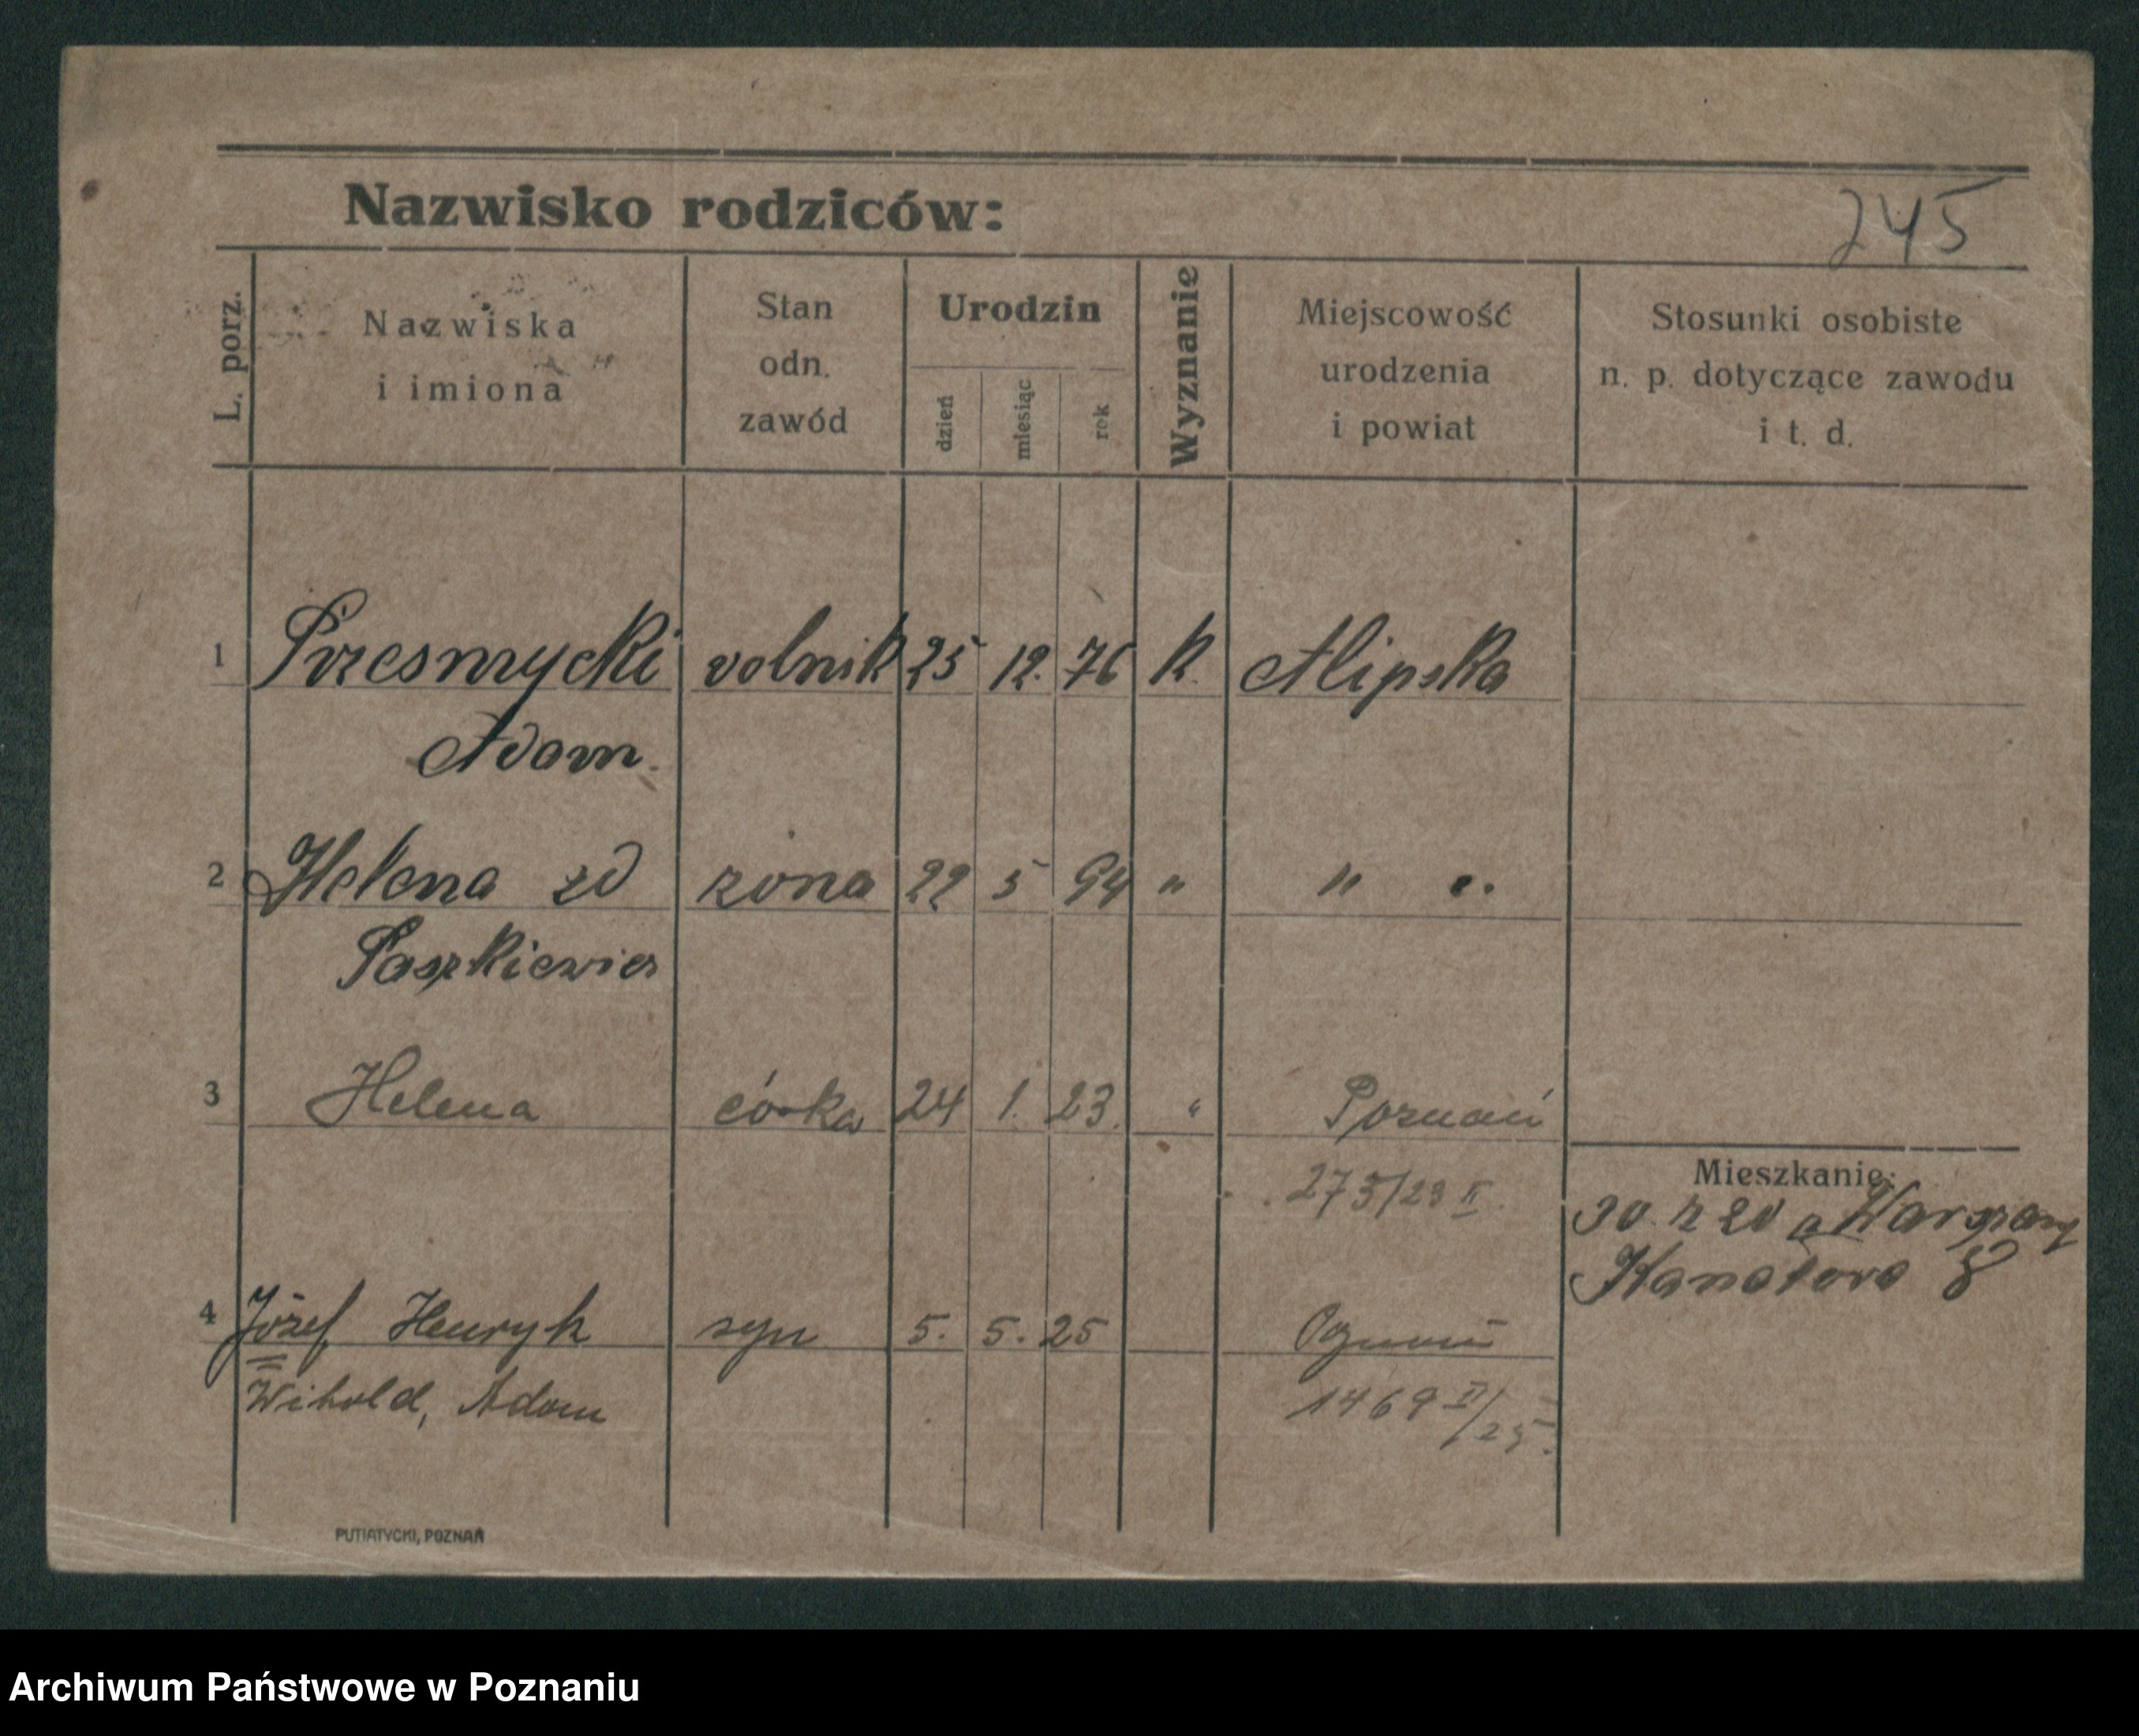 Nazwisko rodziców:
245
L. porz.
Nazwiska
i imiona
Stan
odn.
zawód
Urodzin
dzień
miesiąc
rok
Wyznanie
Miejscowość
urodzenia
i powiat
Stosunki osobiste
n. p. dotyczące zawodu
i t. d.
1 Przesmycki rolnik 25 12. 76 k. Alipska
Adam
2 Helena zd żona 22 5 94 " " "
Paszkiewicz
3 Helena córka 24 1. 23. " Poznań
275/23 II.
Mieszkanie:
30. 12 20 a
Kanatowa 8
4 Józef Henryk syn 5. 5. 25 Poznań
Witold, Adam
1469 II/25.
PUTIATYCKI, POZNAŃ
Archiwum Państwowe w Poznaniu